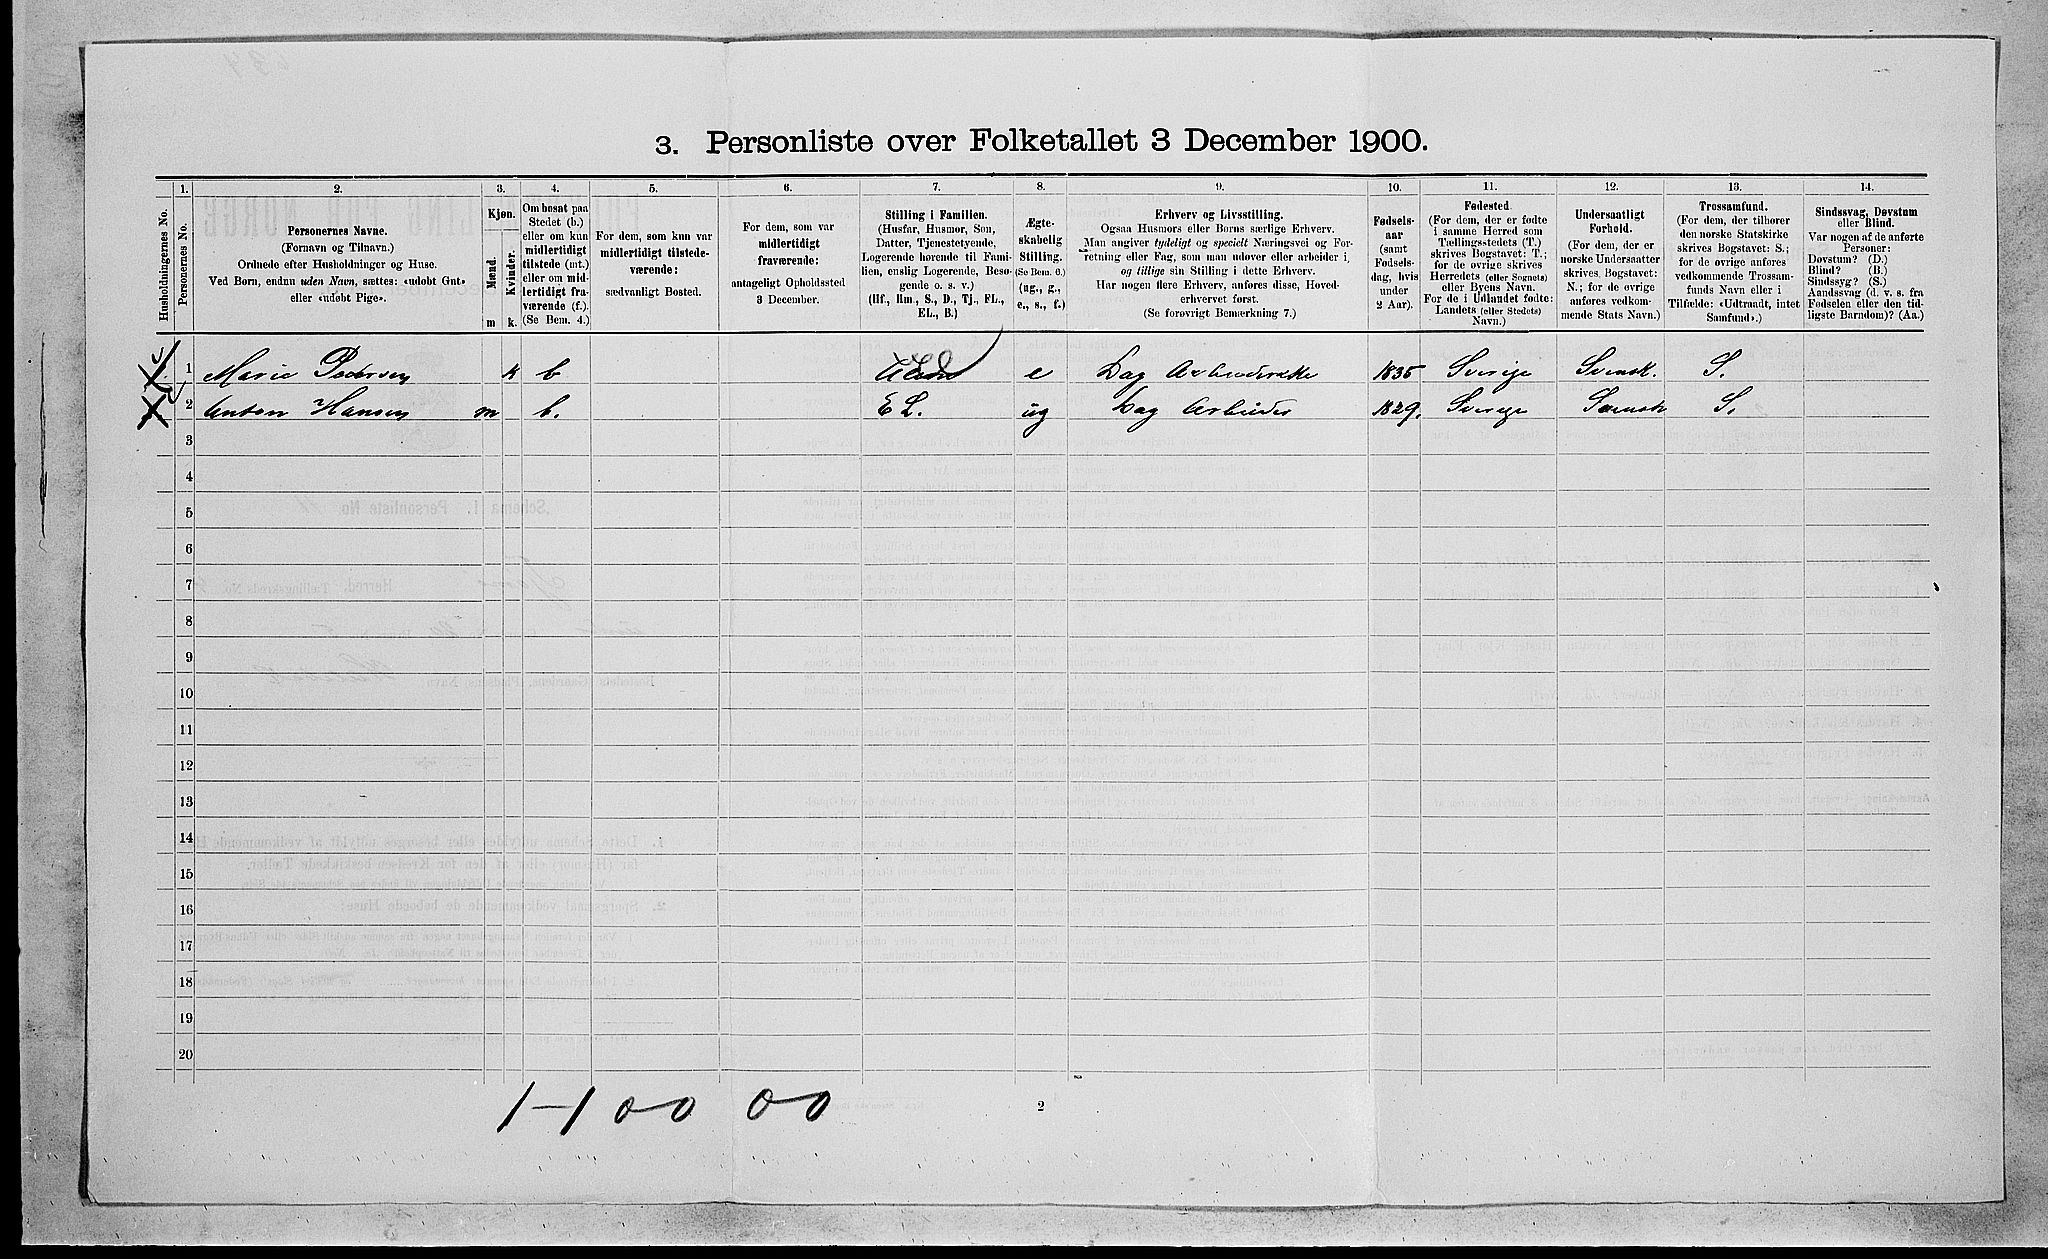 3. Personliste over Folketallet 3 December 1900.
1. 2. 3. 4. 5. 6. 7. 8. 9. 10. 11. 12. 13. 14.
Husholdningernes No.
Personernes No.
Personernes Navne.
(Fornavn og Tilnavn.)
Ordnede efter Husholdninger og Huse.
Ved Børn, endnu uden Navn, sættes: «udøbt Gut»
eller «udøbt Pige».
Kjøn.
Mænd.
Kvinder.
m k.
Om bosat paa
Stedet (b.)
eller om kun
midlertidigt
tilstede (mt.)
eller om mid-
lertidigt fra-
værende (f.)
(Se Bem. 4.)
For dem, som kun var
midlertidigt tilstede-
værende:
sædvanligt Bosted.
For dem, som var
midlertidigt
fraværende:
antageligt Opholdssted
3 December.
Stilling i Familien.
(Husfar, Husmor, Søn,
Datter, Tjenestetyende,
Logerende hørende til Fami-
lien, enslig Logerende, Besø-
gende o. s. v.)
(Hf., Hm., S., D., Tj., FL.,
EL., B.)
Ægte-
skabelig
Stilling.
(Se Bem. 6.)
(ug., g.,
e., s., f.)
Erhverv og Livsstilling.
Ogsaa Husmors eller Børns særlige Erhverv.
Man angiver tydeligt og specielt Næringsvei og For-
retning eller Fag, som man udøver eller arbeider i,
og tillige sin Stilling i dette Erhverv.
Har nogen flere Erhverv, anføres disse, Hoved-
erhvervet først.
(Se forøvrigt Bemærkning 7.)
Fødsels-
aar
(samt
Fødsels-
dag, hvis
under
2 Aar).
Fødested.
(For dem, der er fødte
i samme Herred som
Tællingsstedets (T.)
skrives Bogstavet: T.;
for de øvrige skrives
Herredets (eller Sognets)
eller Byens Navn.
For de i Udlandet fødte:
Landets (eller Stedets)
Navn.)
Undersaatligt
Forhold.
(For dem, der er
norske Undersaatter
skrives, Bogstavet:
N.; for de øvrige
anføres vedkom-
mende Stats Navn.)
Trossamfund.
(For dem, der tilhører
den norske Statskirke
skrives Bogstavet: S.;
for de øvrige anføres
vedkommende Trossam-
funds Navn eller i
Tilfælde: «Udtraadt, intet
Samfund».)
Sindssvag, Døvstum
eller Blind.
Var nogen af de anførte
Personer:
Døvstum? (D.)
Blind? (B.)
Sindssyg? (S.)
Aandssvag (d. v. s. fra
Fødselen eller den tid-
ligste Barndom)? (Aa.)
1 Marie Pedersen k b e Dag Arbeiderske 1835 Sverige Svensk. S.
2 Anton Hansen m b. EL. ug Dag Arbeider 1829. Sverige Svensk S.
3
4
5
6
7
8
9
10
11
12
13
14
15
16
17
18
19
20
1-1 00 00
2